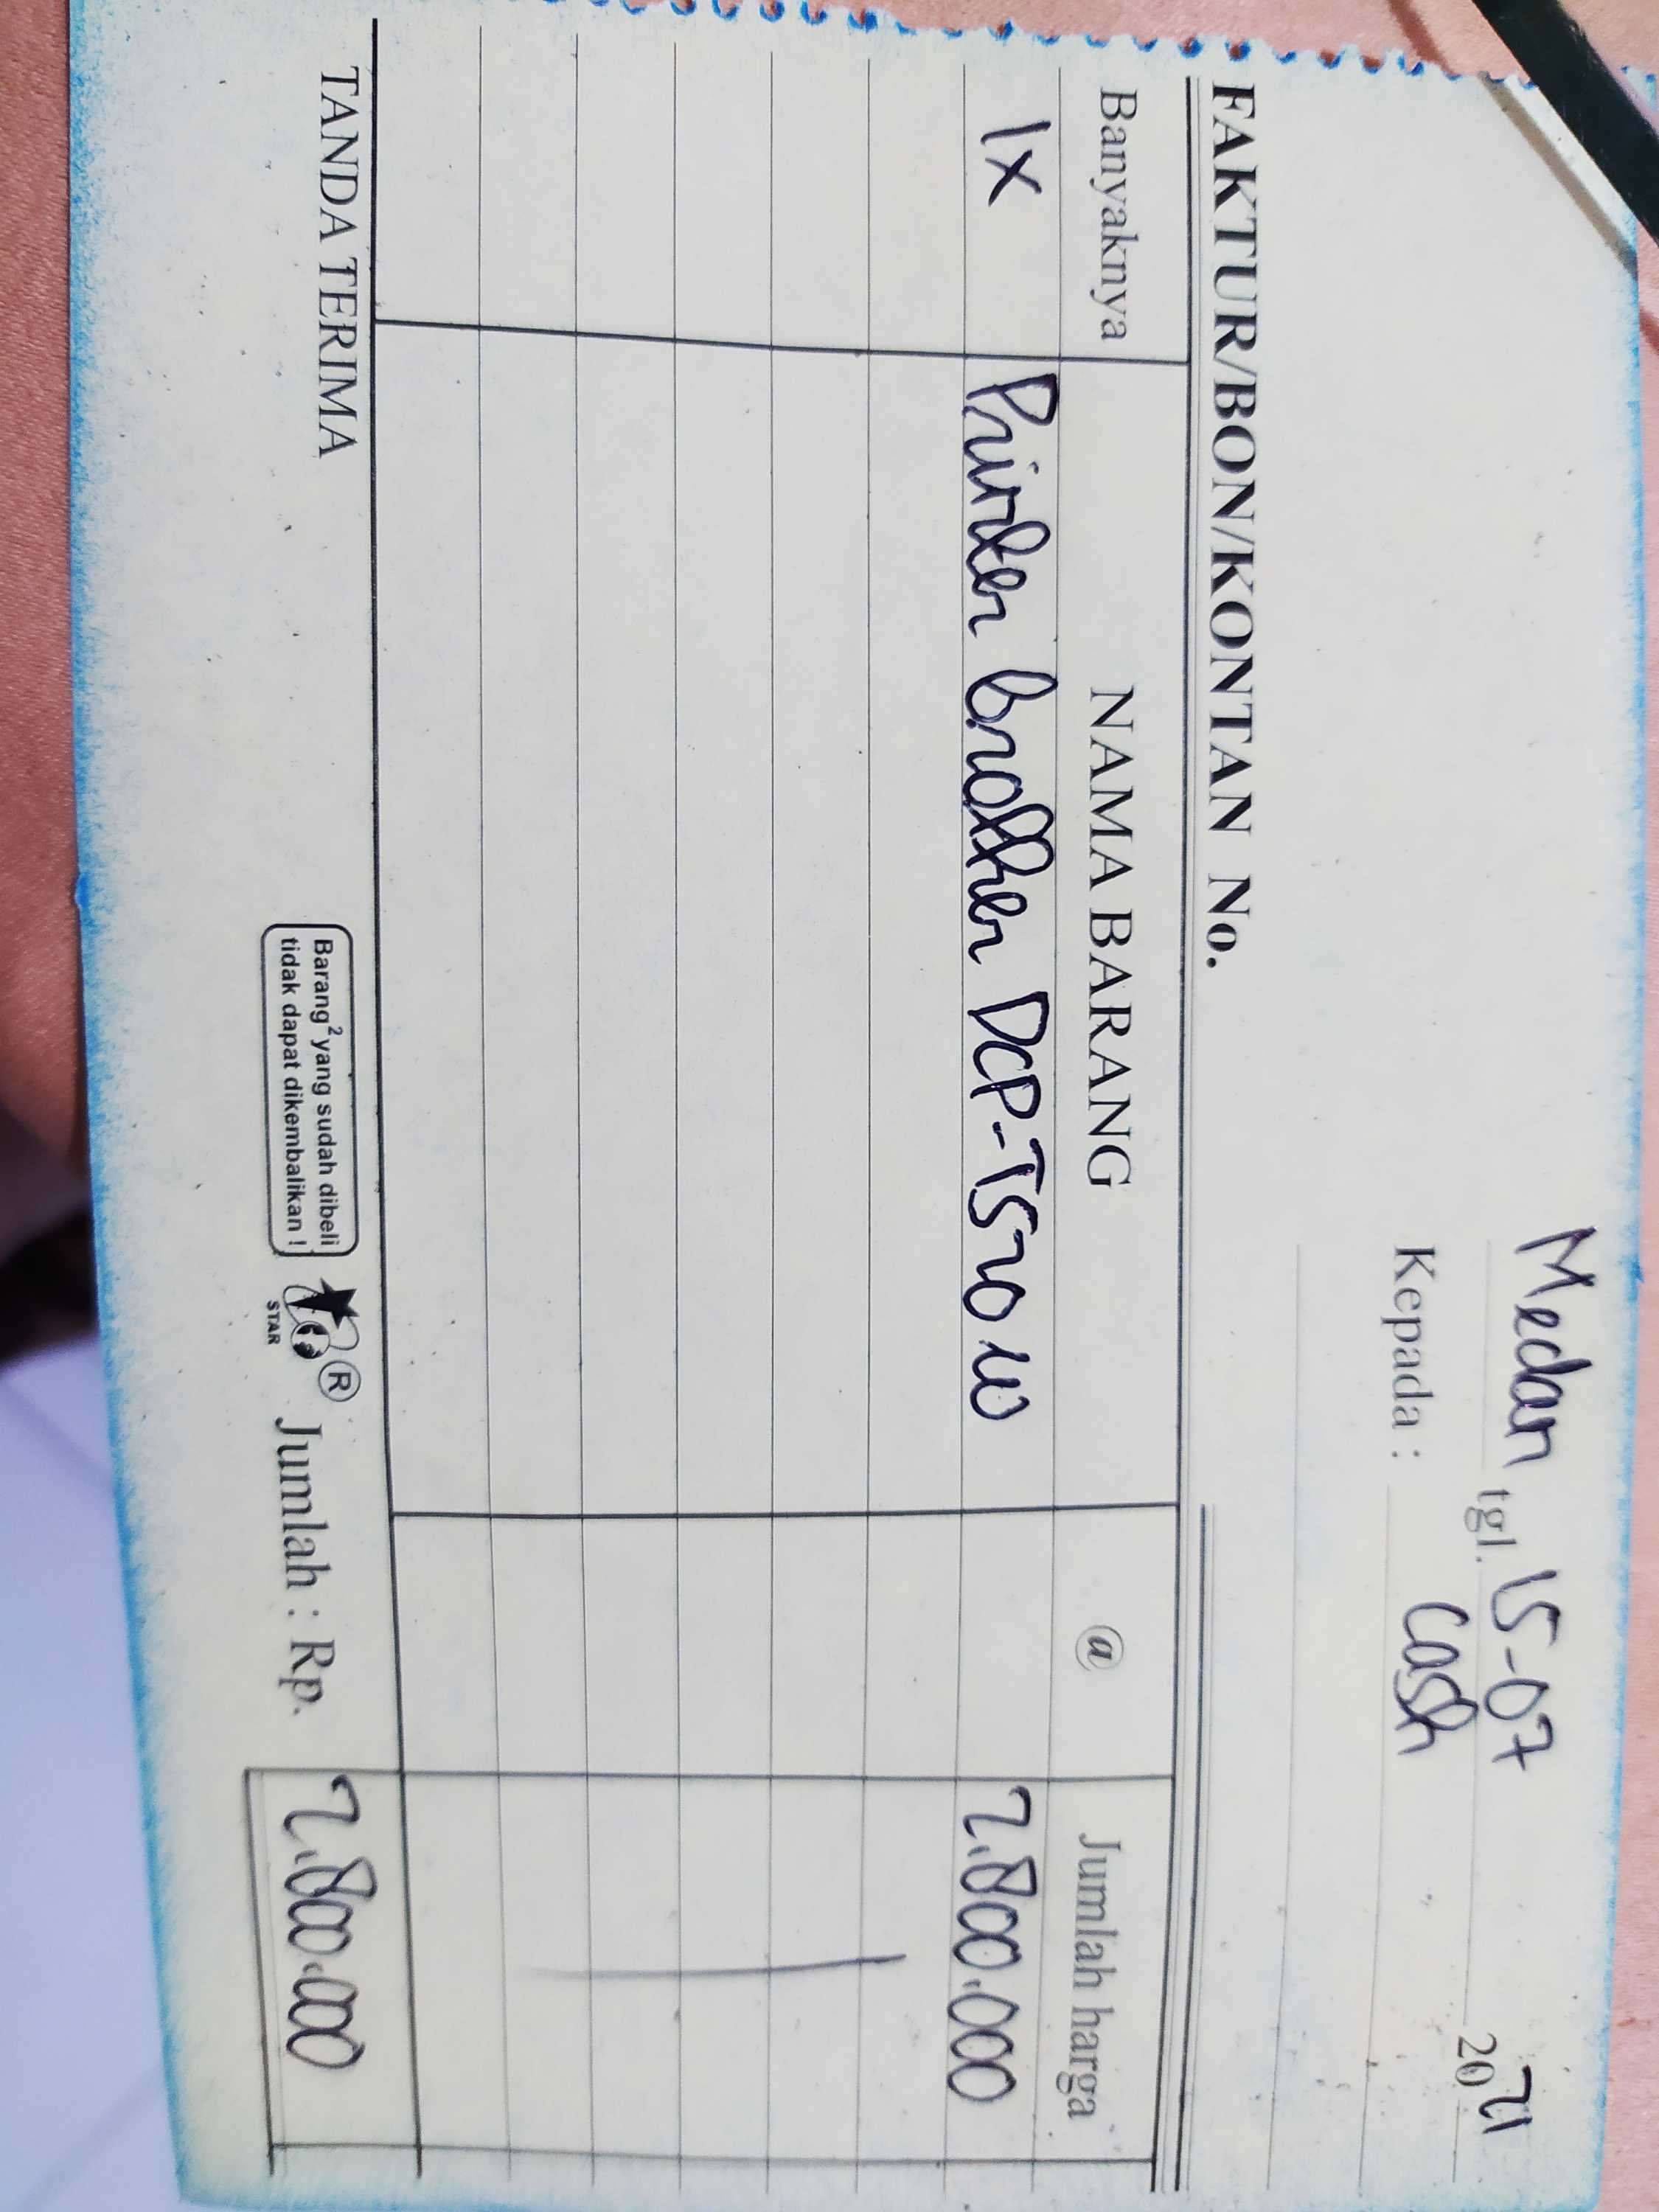 Medan tgl. 15-07 2021
Kepada : Cash
FAKTUR/BON/KONTAN No.
Banyaknya NAMA BARANG @ Jumlah harga
1x Printer brother DCP-T520W 2.800.000
TANDA TERIMA
Barang² yang sudah dibeli
tidak dapat dikembalikan !
STAR
®
Jumlah : Rp. 2.800.000